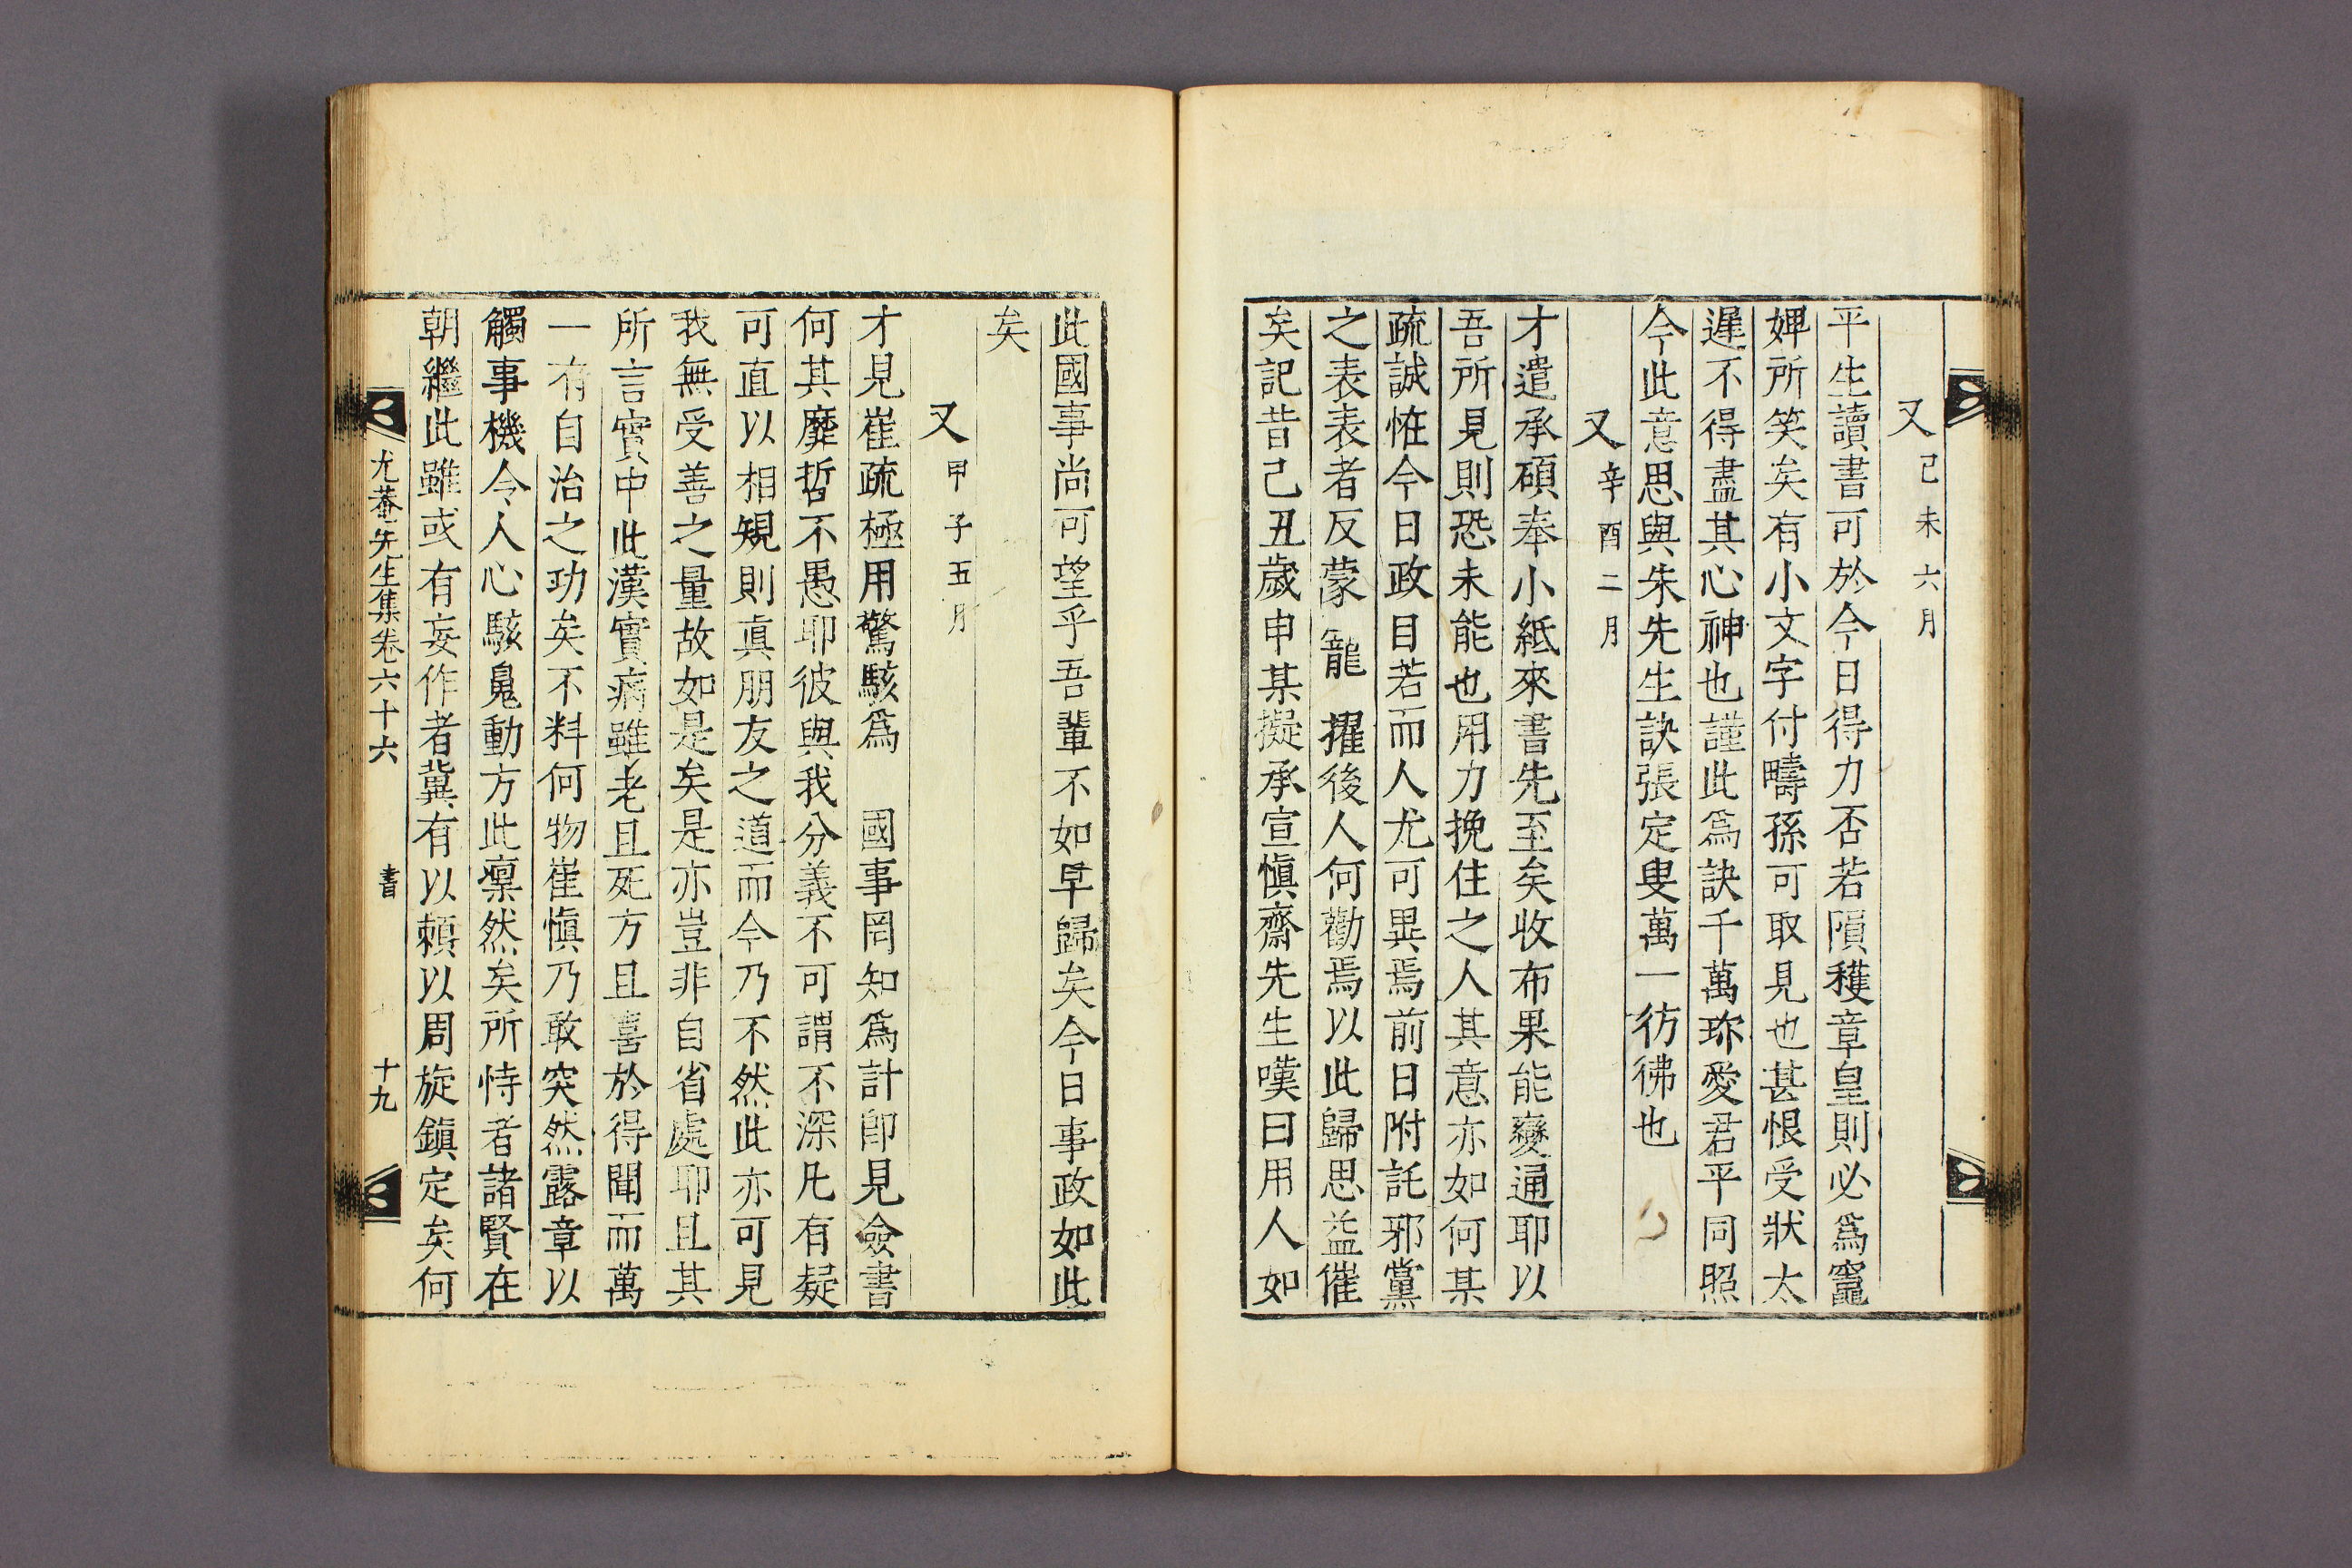 又己未六月
平生讀書可於今日得力否若隕穫章皇則必爲竈
婢所笑矣有小文字付疇孫可取見也甚恨受狀太
遲不得盡其心神也謹此爲訣千萬珎愛君平同照
今此意思與朱先生訣張定叟萬一彷彿也
又辛酉二月
才遣承碩奉小紙來書先至矣收布果能變通耶以
吾所見則恐未能也用力挽住之人其意亦如何某
疏誠恠今日政目若而人尤可異焉前日附託邪黨
之表表者反蒙寵擢後人何勸焉以此歸思益催
矣記昔己丑歲申某擬承宣愼齋先生嘆曰用人如
此國事尚可望乎吾輩不如早歸矣今日事政如此
矣
又甲子五月
才見崔疏極用驚駭爲國事罔知爲計卽見僉書
何其靡哲不愚耶彼與我分義不可謂不深凡有疑
可直以相規則眞朋友之道而今乃不然此亦可見
我無受善之量故如是矣是亦豈非自省處耶且其
所言實中此漢實病雖老且死方且喜於得聞而萬
一有自治之功矣不料何物崔愼乃敢突然露章以
觸事機令人心駭鬼動方此凛然矣所恃者諸賢在
朝繼此雖或有妄作者冀有以賴以周旋鎭定矣何
尤菴先生集卷六十六 書 十九